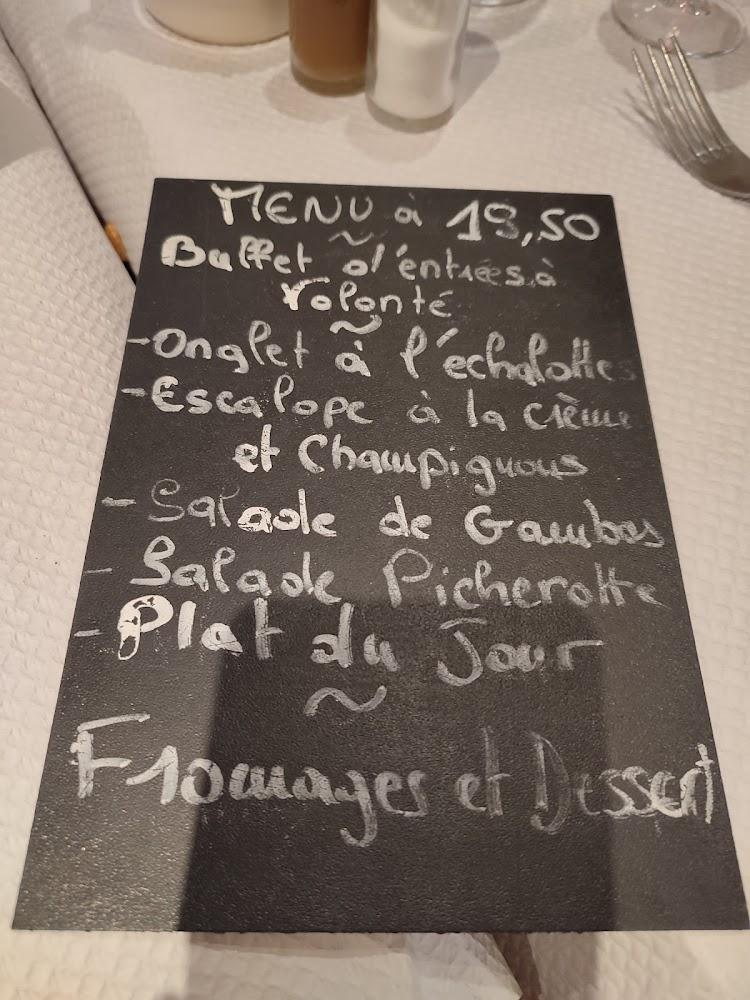 MENU à 19,50
~
Buffet d'entrées à
volonté
~
-Onglet à l'échalottes
-Escalope à la crème
et Champignons
- Salade de Gambas
- Salade Picherotte
- Plat du Jour
~
Fromages et Dessert